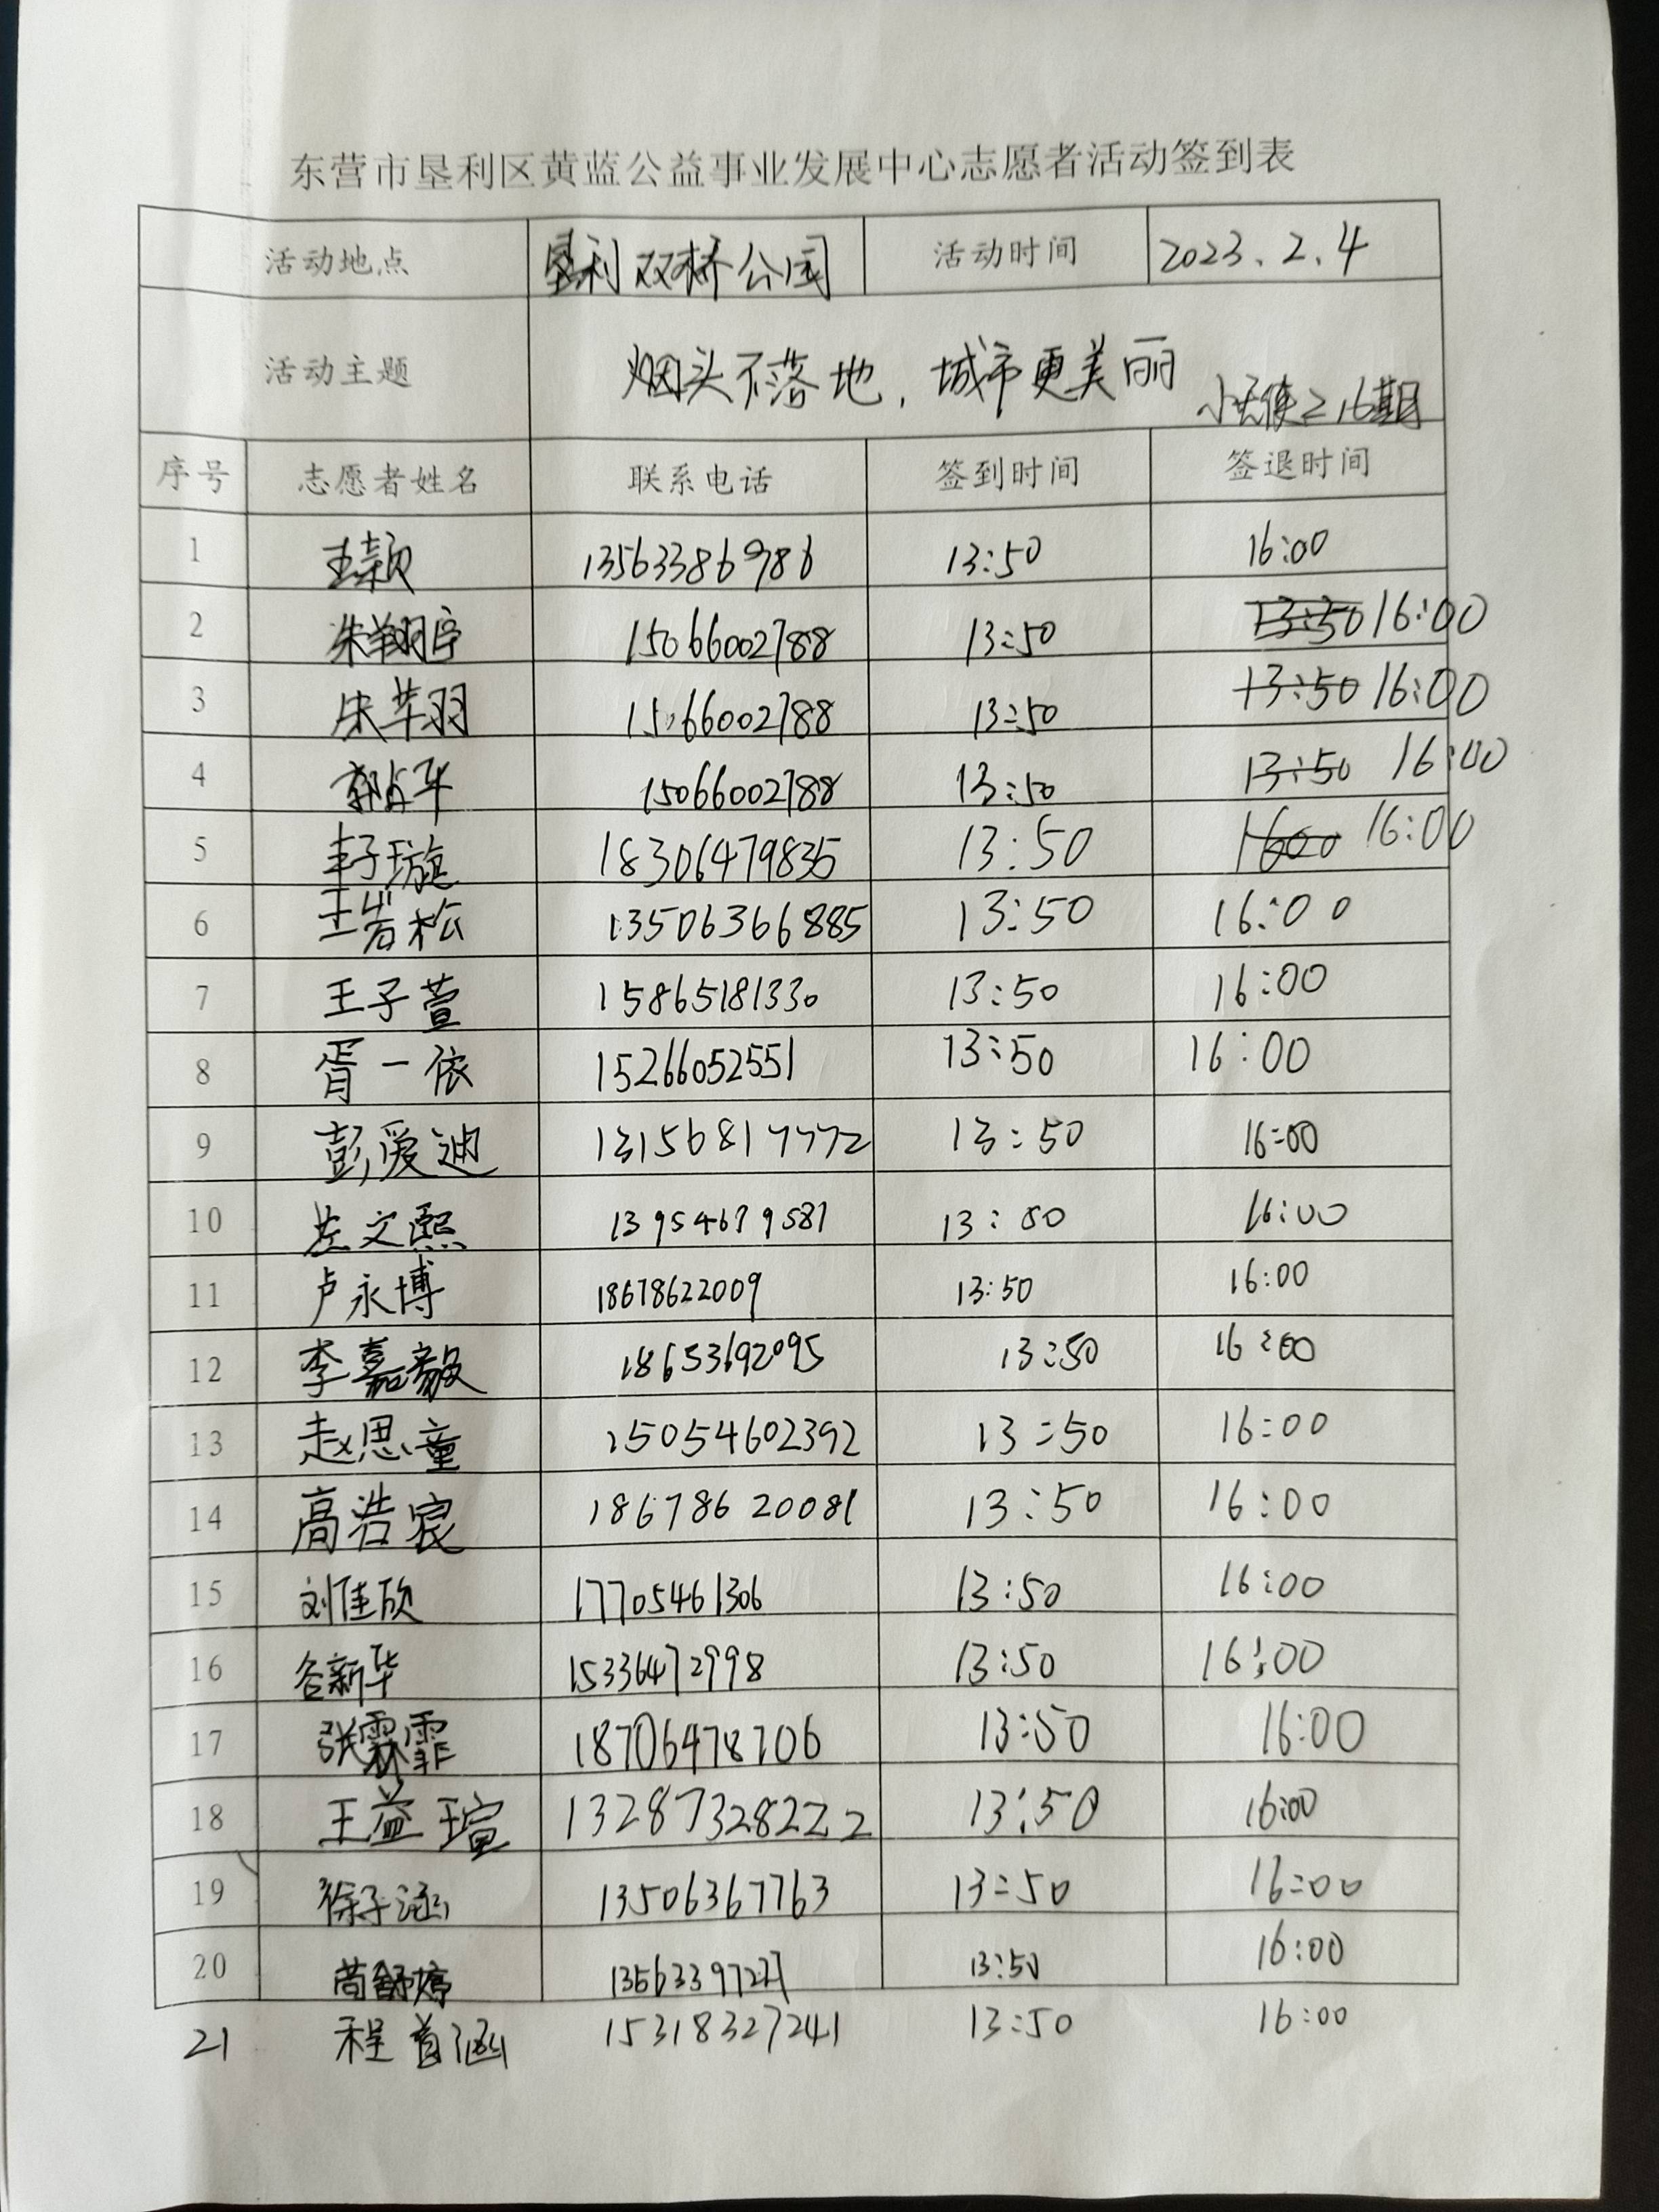 东营市垦利区黄蓝公益事业发展中心志愿者活动签到表
活动地点 垦利双桥公园 活动时间 2023.2.4
活动主题 烟头不落地,城市更美丽
小天使216期
序号 志愿者姓名 联系电话 签到时间 签退时间
1 王颖 13563386986 13:50 16:00
2 15066002788 13:50 13:50 16:00
3 15066002788 13:50 13:50 16:00
4 15066002788 13:50 13:50 16:00
5 子璇 18306479835 13:50 1600 16:00
6 王岩松 13506366885 13:50 16:00
7 王子萱 15865181330 13:50 16:00
8 胥一依 15266052551 13:50 16:00
9 彭爱迪 13156817772 13:50 16:00
10 左文熙 13954679581 13:50 16:00
11 卢永博 18678622009 13:50 16:00
12 李嘉毅 18653692095 13:50 16:00
13 赵思童 15054602392 13:50 16:00
14 高浩宸 18678620081 13:50 16:00
15 刘佳欣 17705461306 13:50 16:00
16 谷新华 15336472998 13:50 16:00
17 张霖霏 18706478706 13:50 16:00
18 王益瑄 13287328222 13:50 16:00
19 徐子涵 13506367763 13:50 16:00
20 13:50 16:00
21 程首涵 15318327241 13:50 16:00